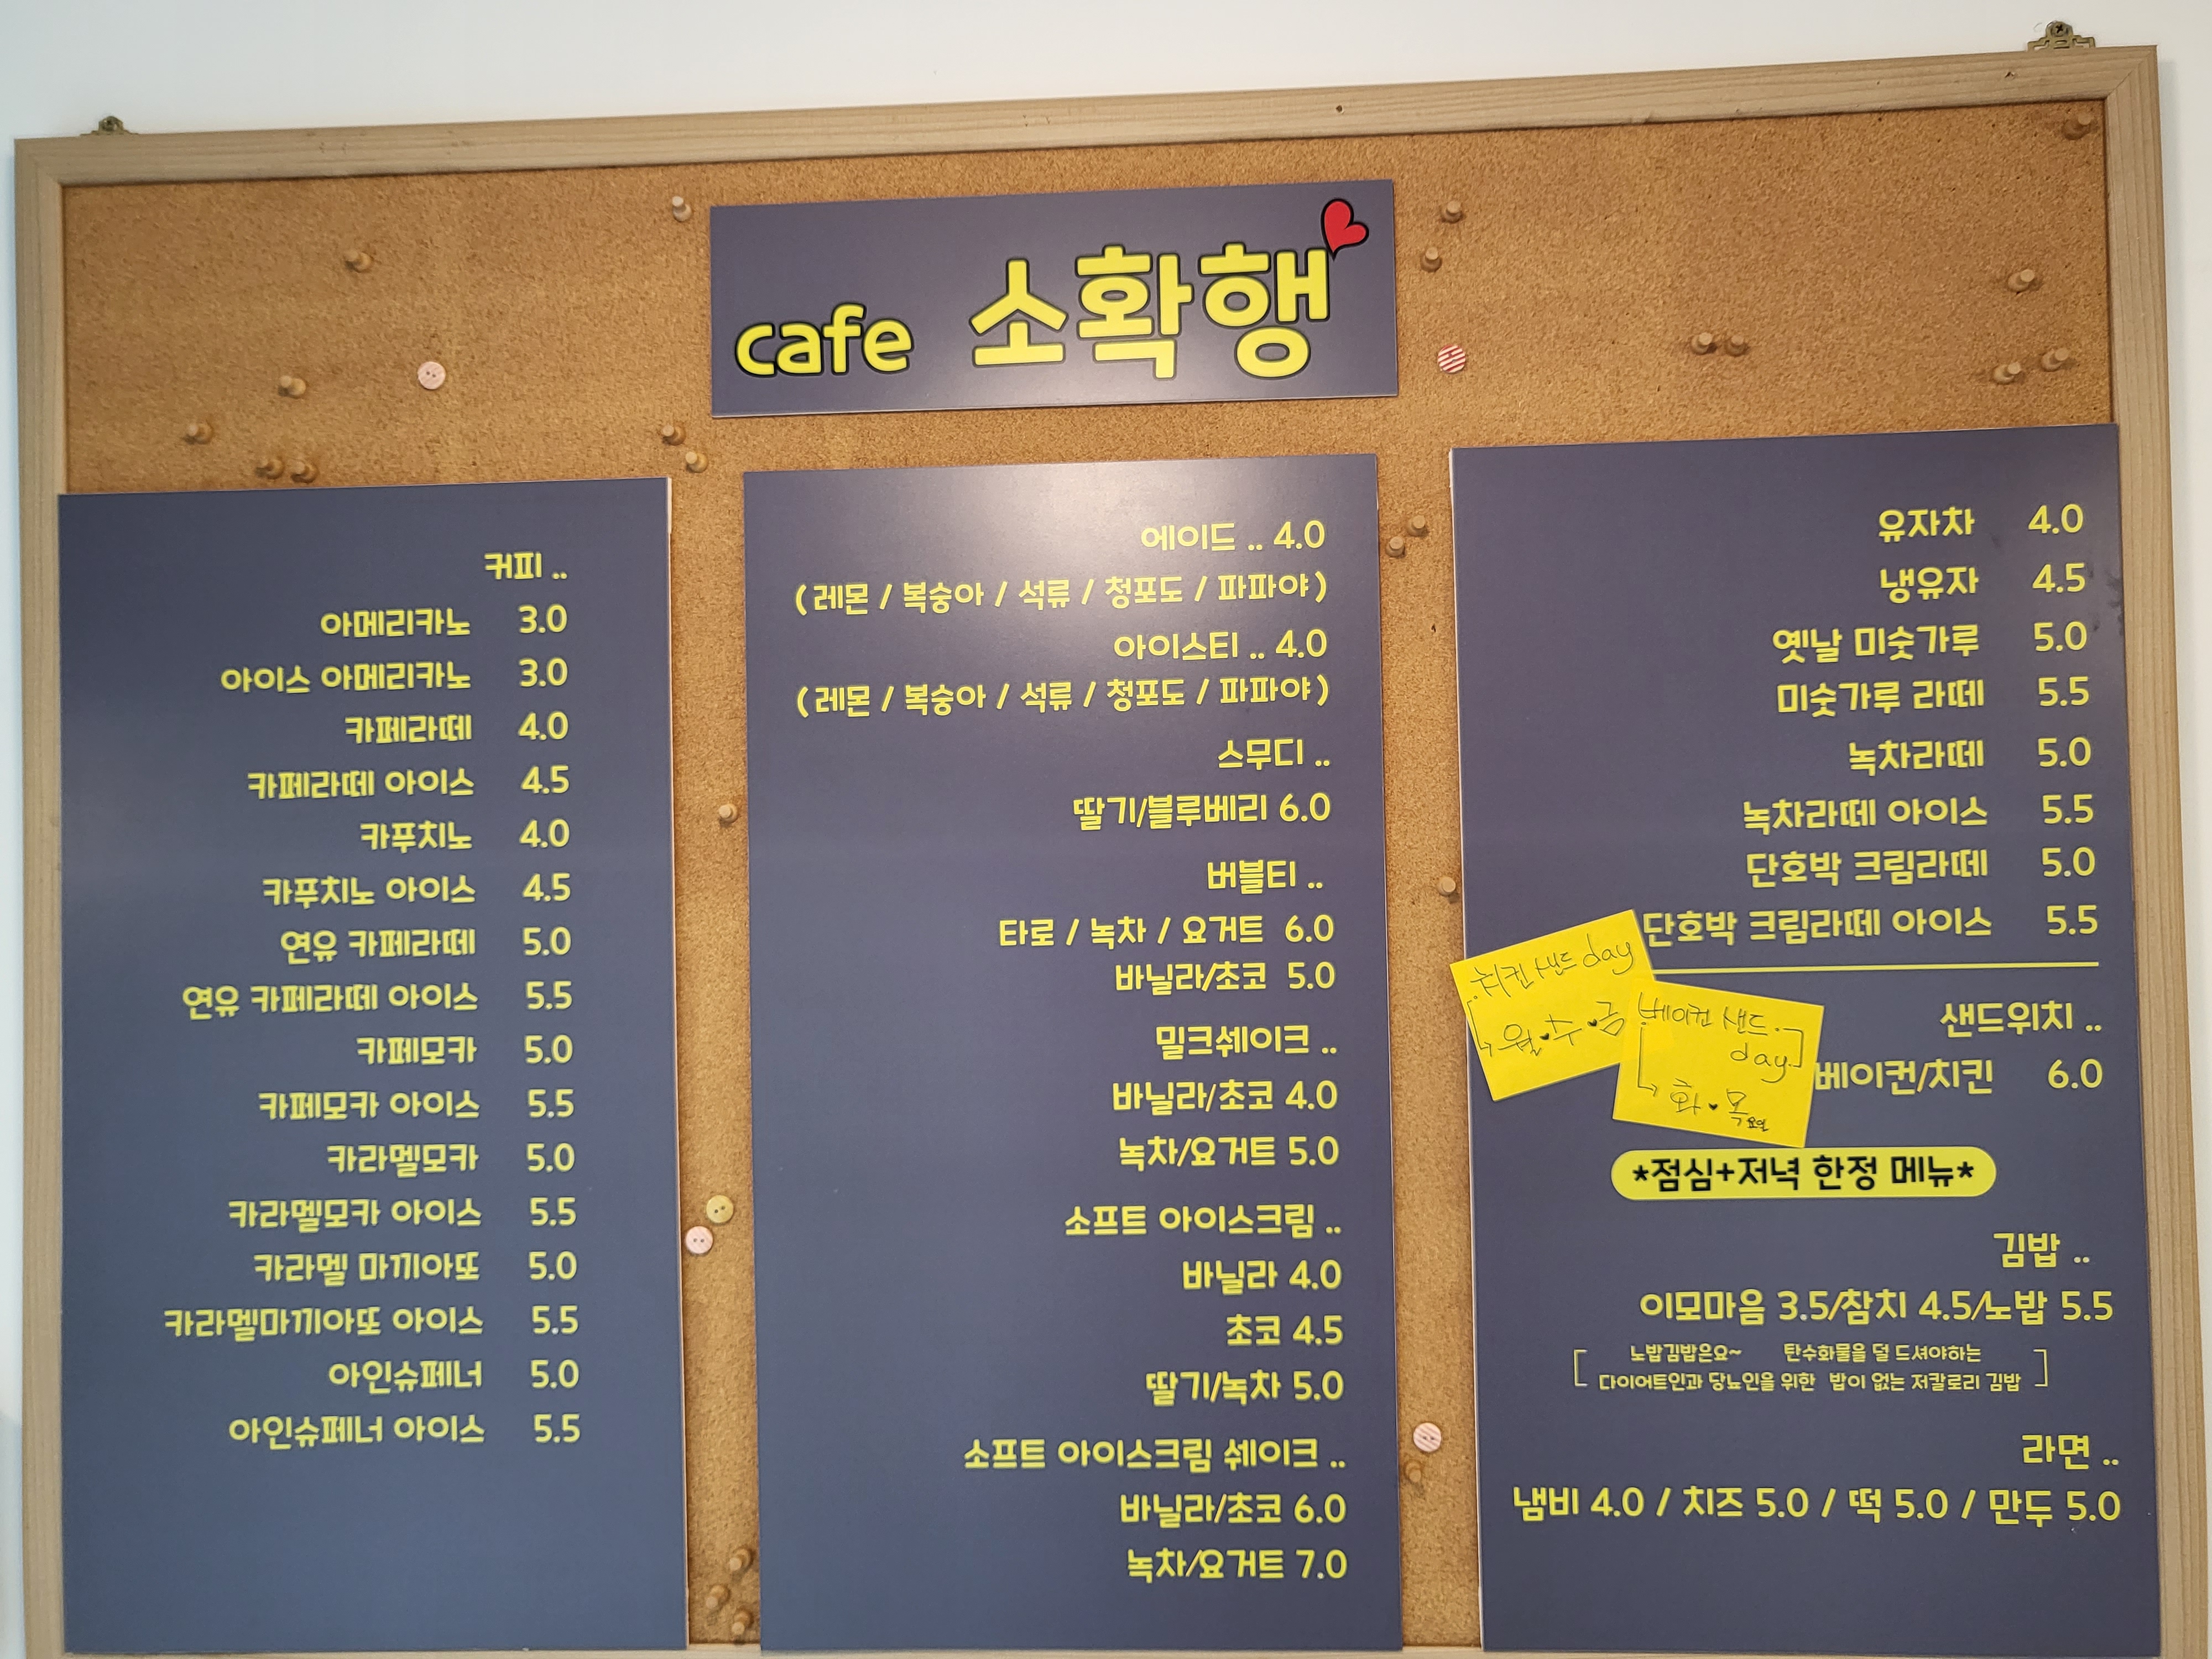 cafe 소확행
커피 ..
아메리카노 3.0
아이스 아메리카노 3.0
카페라떼 4.0
카페라떼 아이스 4.5
카푸치노 4.0
카푸치노 아이스 4.5
연유 카페라떼 5.0
연유 카페라떼 아이스 5.5
카페모카 5.0
카페모카 아이스 5.5
카라멜모카 5.0
카라멜모카 아이스 5.5
카라멜 마끼아또 5.0
카라멜마끼아또 아이스 5.5
아인슈페너 5.0
아인슈페너 아이스 5.5
에이드 .. 4.0
( 레몬 / 복숭아 / 석류 / 청포도 / 파파야 )
아이스티 .. 4.0
( 레몬 / 복숭아 / 석류 / 청포도 / 파파야 )
스무디 ..
딸기/블루베리 6.0
버블티 ..
타로 / 녹차 / 요거트 6.0
바닐라/초코 5.0
밀크쉐이크 ..
바닐라/초코 4.0
녹차/요거트 5.0
소프트 아이스크림 ..
바닐라 4.0
초코 4.5
딸기/녹차 5.0
소프트 아이스크림 쉐이크 ..
바닐라/초코 6.0
녹차/요거트 7.0
유자차 4.0
냉유자 4.5
옛날 미숫가루 5.0
미숫가루 라떼 5.5
녹차라떼 5.0
녹차라떼 아이스 5.5
단호박 크림라떼 5.0
단호박 크림라떼 아이스 5.5
치킨 샌드 day
월·수·금
베이컨 샌드
day
화·목요일
샌드위치 ..
베이컨/치킨 6.0
*점심+저녁 한정 메뉴*
김밥 ..
이모마음 3.5/참치 4.5/노밥 5.5
노밥김밥은요~ 탄수화물을 덜 드셔야하는
다이어트인과 당뇨인을 위한 밥이 없는 저칼로리 김밥
라면 ..
냄비 4.0 / 치즈 5.0 / 떡 5.0 / 만두 5.0